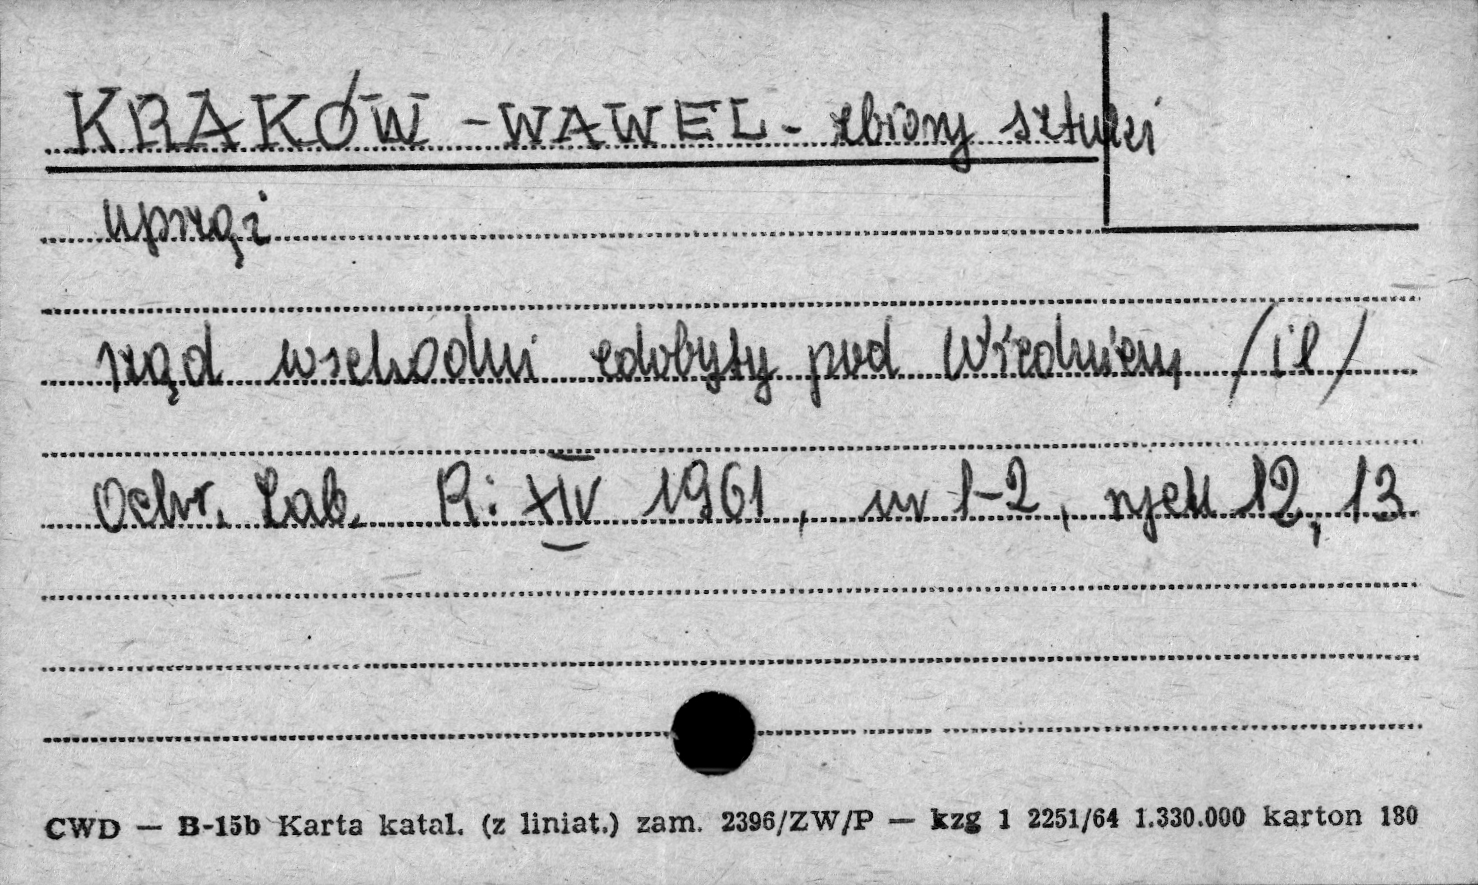 KRAKÓW - WAWEL - zbiory sztuki
uprzęż
rząd wschodni zdobyty pod Wiedniem /il/
Ochr. Zab. R: XIV 1961, nr 1-2, ryc 12, 13
CWD — B-15b Karta katal. (z liniat.) zam. 2396/ZW/P — kzg 1 2251/64 1.330.000 karton 180